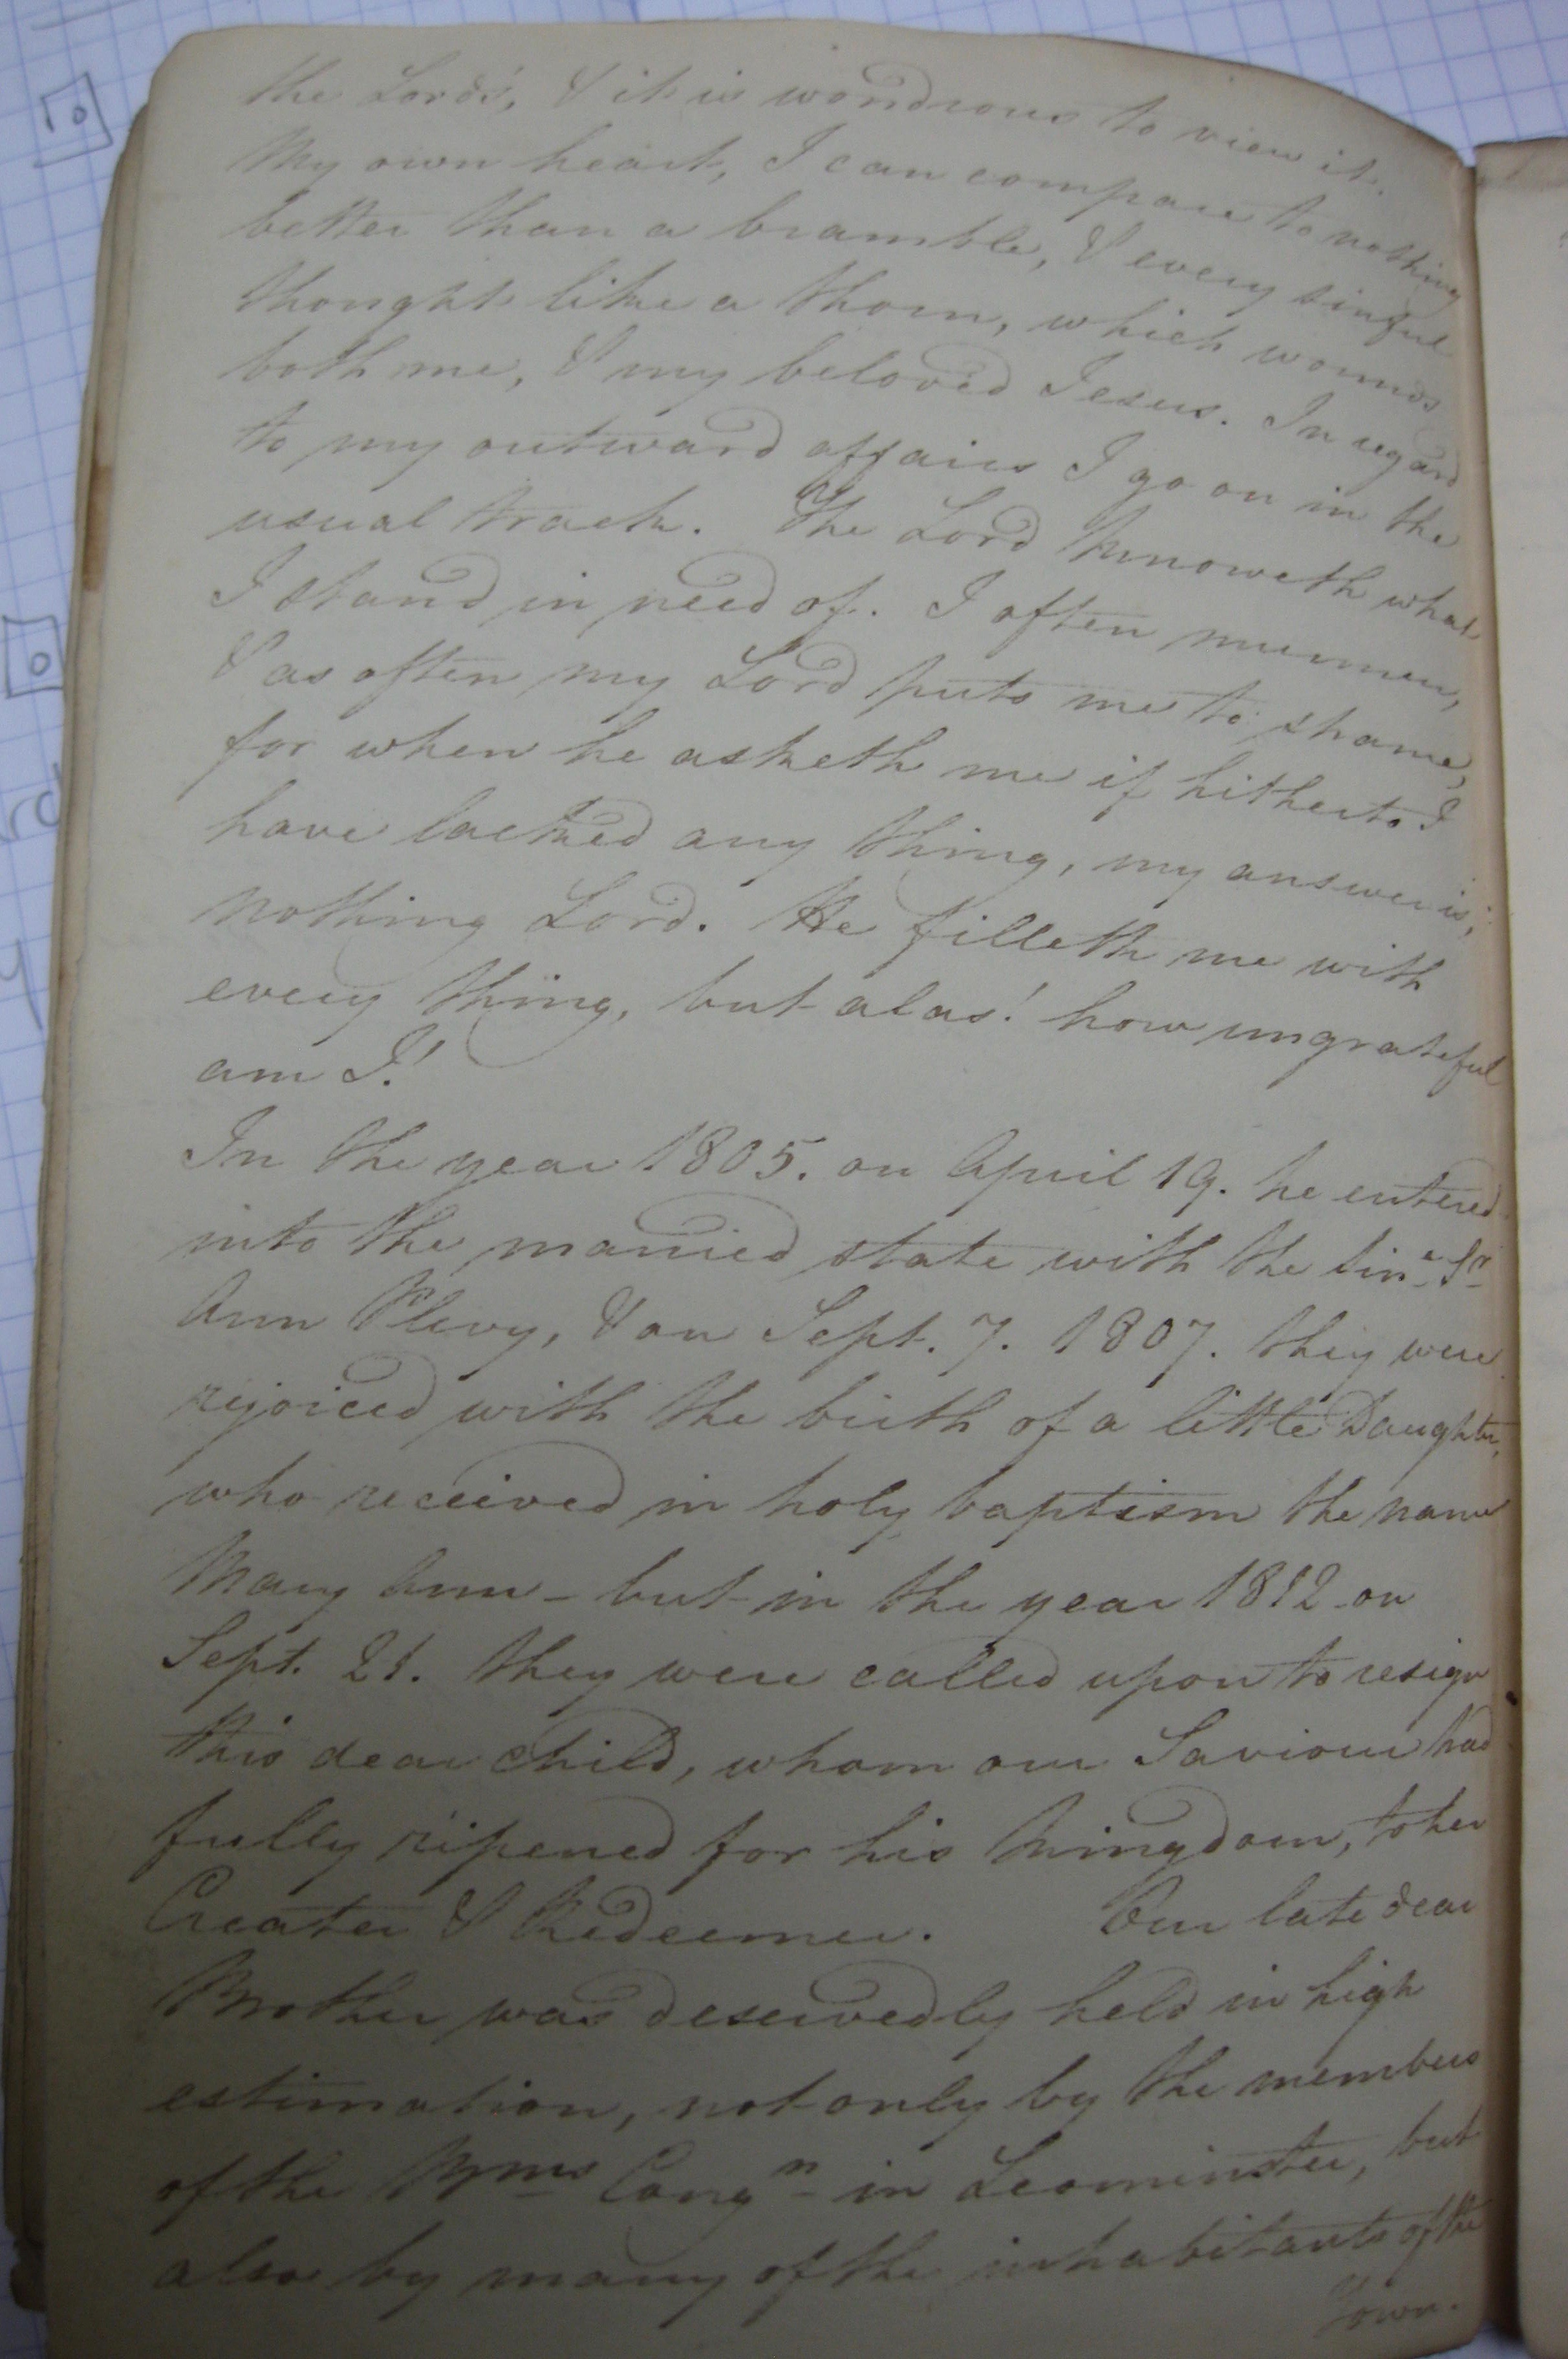 the Lord's, & it is wondrous to view it.
My own heart, I can compare to nothing
better than a bramble, & every sinful
thought like a thorn, which wounds
both me, & my beloved Jesus. In regard
to my outward affairs I go on in the
usual track. The Lord knoweth what
I stand in need of. I often murmur,
& as often my Lord puts me to shame,
for when he asketh me if hitherto I
have lacked any thing, my answer is,
nothing Lord. He filleth me with
every thing, but alas! how ungrateful
am I!
In the year 1805. on April 19. he entered
into the married state with the Sin.e Sr
Ann Plevy, & on Sept. 7. 1807. they were
rejoiced with the birth of a little Daughter,
who received in holy baptism the name
Mary Ann - but in the year 1812 on
Sept. 21. they were called upon to resign
this dear child, whom our Saviour had
fully ripened for his kingdom, to her
Creator & Redeemer. Our late dear
Brother was deservedly held in high
estimation, not only by the members
of the Brns Congn in Leominster, but
also by many of the inhabitants of the
Town.